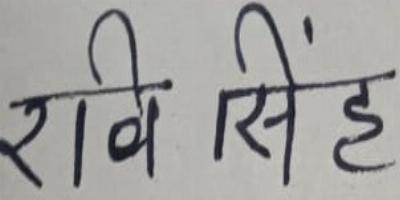 रवि सिंह